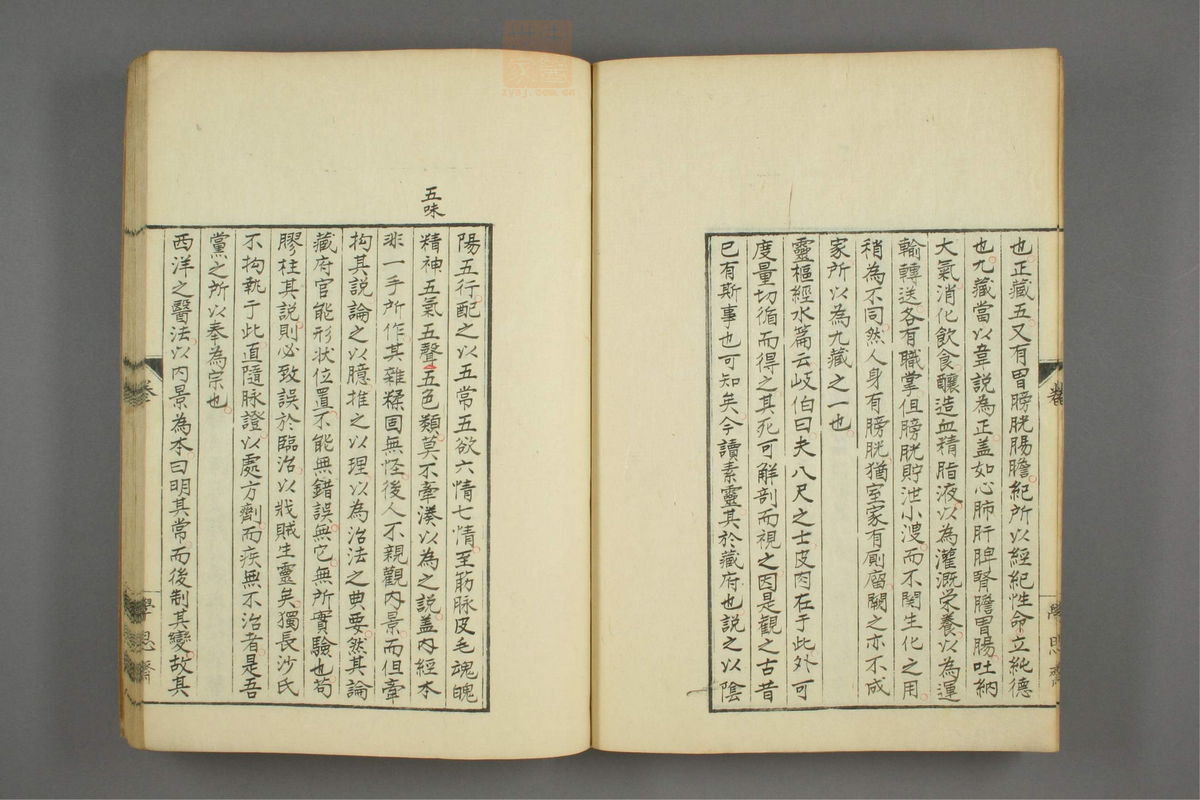 也正藏五又有胃膀胱腸膽紀所以經紀性命立純德
也九藏當以韋說為正盖如心肺肝脾腎膽胃腸吐納
大氣消化飲食釀造血精脂液以為灌溉栄養以為運
輸轉送各有職掌但膀胱貯泄小溲而不関生化之用
稍為不同然人身有膀胱猶室家有厠廇闕之亦不成
家所以為九藏之一也
靈樞經水篇云岐伯曰夫八尺之士皮肉在于此外可
度量切循而得之其死可解剖而視之因是觀之古昔
已有斯事也可知矣今讀素靈其於藏府也説之以陰
卷
學思齋
五味
陽五行配之以五常五欲六情七情至筋脉皮毛魂魄
精神五氣五聲五色類莫不牽湊以為之説盖内經本
非一手所作其雜糅固無怪後人不親觀内景而但牽
拘其説論之以臆推之以理以為治法之典要然其論
藏府官能形状位置不能無錯誤無它無所實驗也苟
膠柱其説則必致誤於臨治以戕賊生靈矣獨長沙氏
不拘執于此直隨脉證以處方劑而疾無不治者是吾
黨之所以奉為宗也
西洋之醫法以内景為本曰明其常而後制其變故其
卷
學思齋